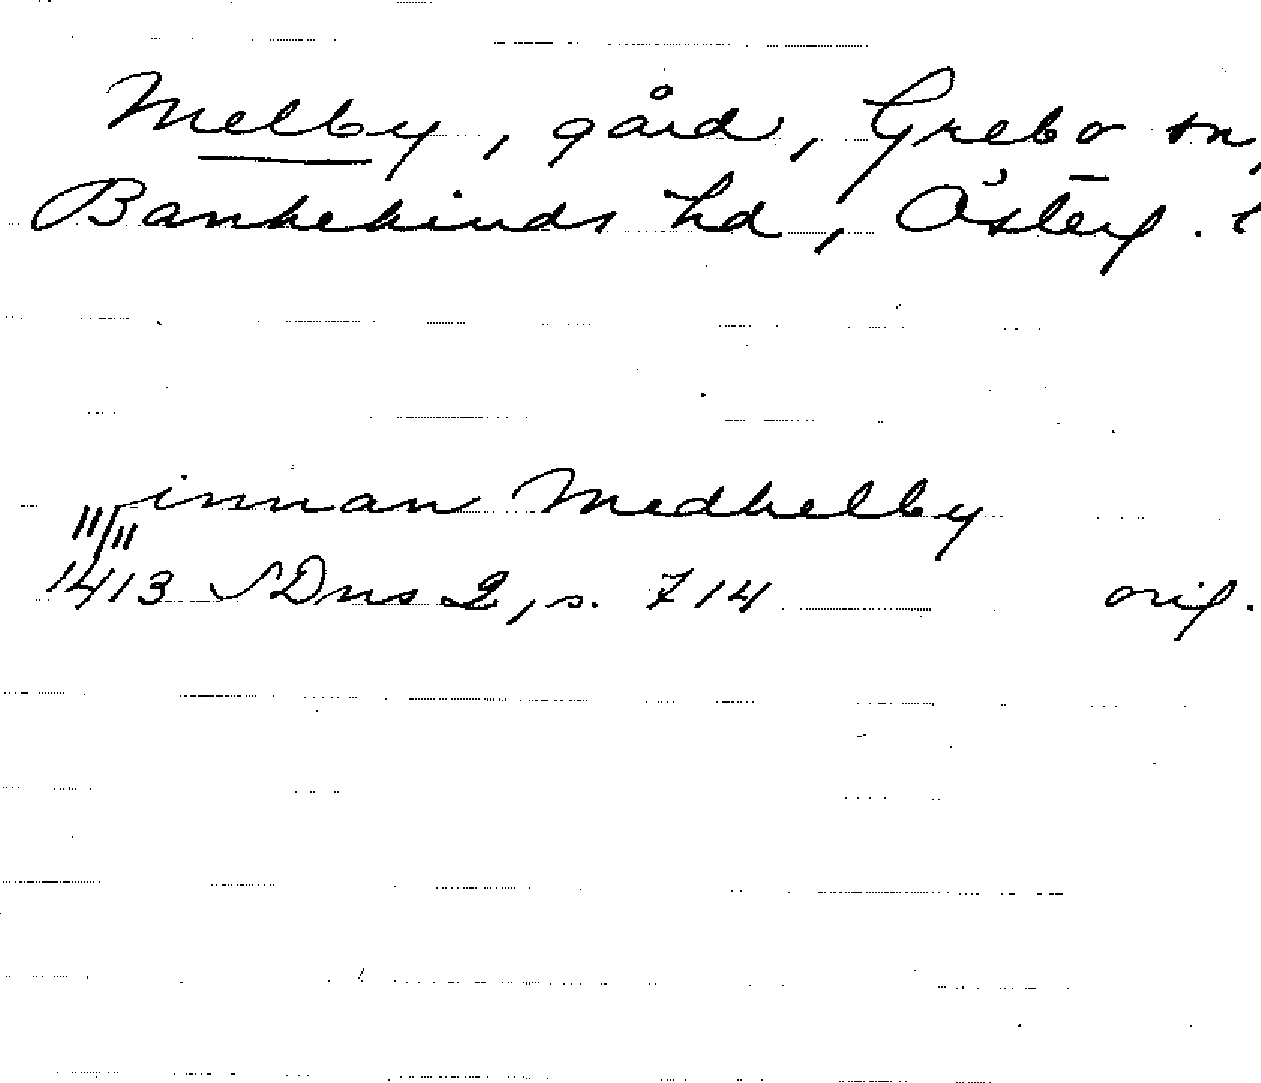 Melby, gård, Grebo sn,
Bankekinds hd, Österg.
innan Medhelby
11/11 1413 SDns 2, s. 714 orig.